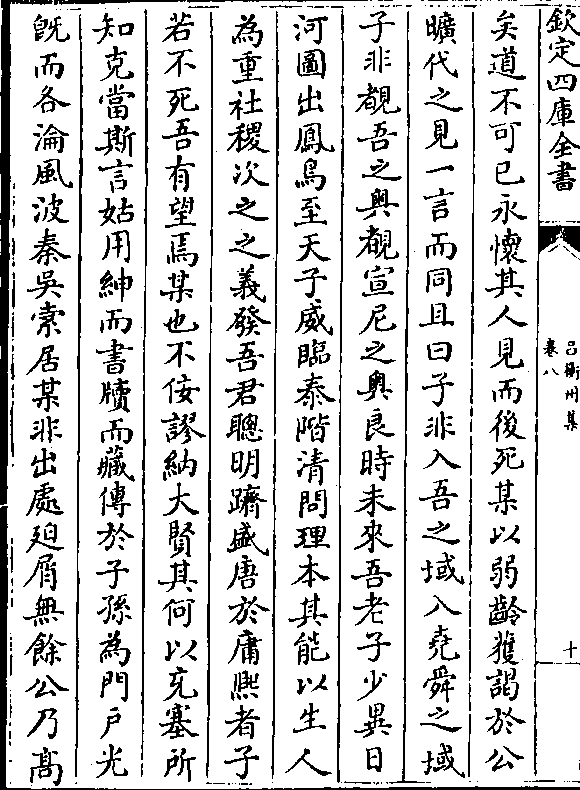 欽定四庫全書
吕衡州集
卷八
十
矣道不可已永懷其人見而後死某以弱齡獲謁於公
曠代之見一言而同且曰子非入吾之域入堯舜之域
子非覩吾之奥覩宣尼之奥良時未來吾老子少異日
河圖出鳳鳥至天子威臨泰階清問理本其能以生人
為重社稷次之之義發吾君聰明躋盛唐於庸熈者子
若不死吾有望焉某也不佞謬納大賢其何以充塞所
知克當斯言姑用紳而書牘而藏傳於子孫為門户光
旣而各淪風波秦吳索居某非出處廹屑無餘公乃髙